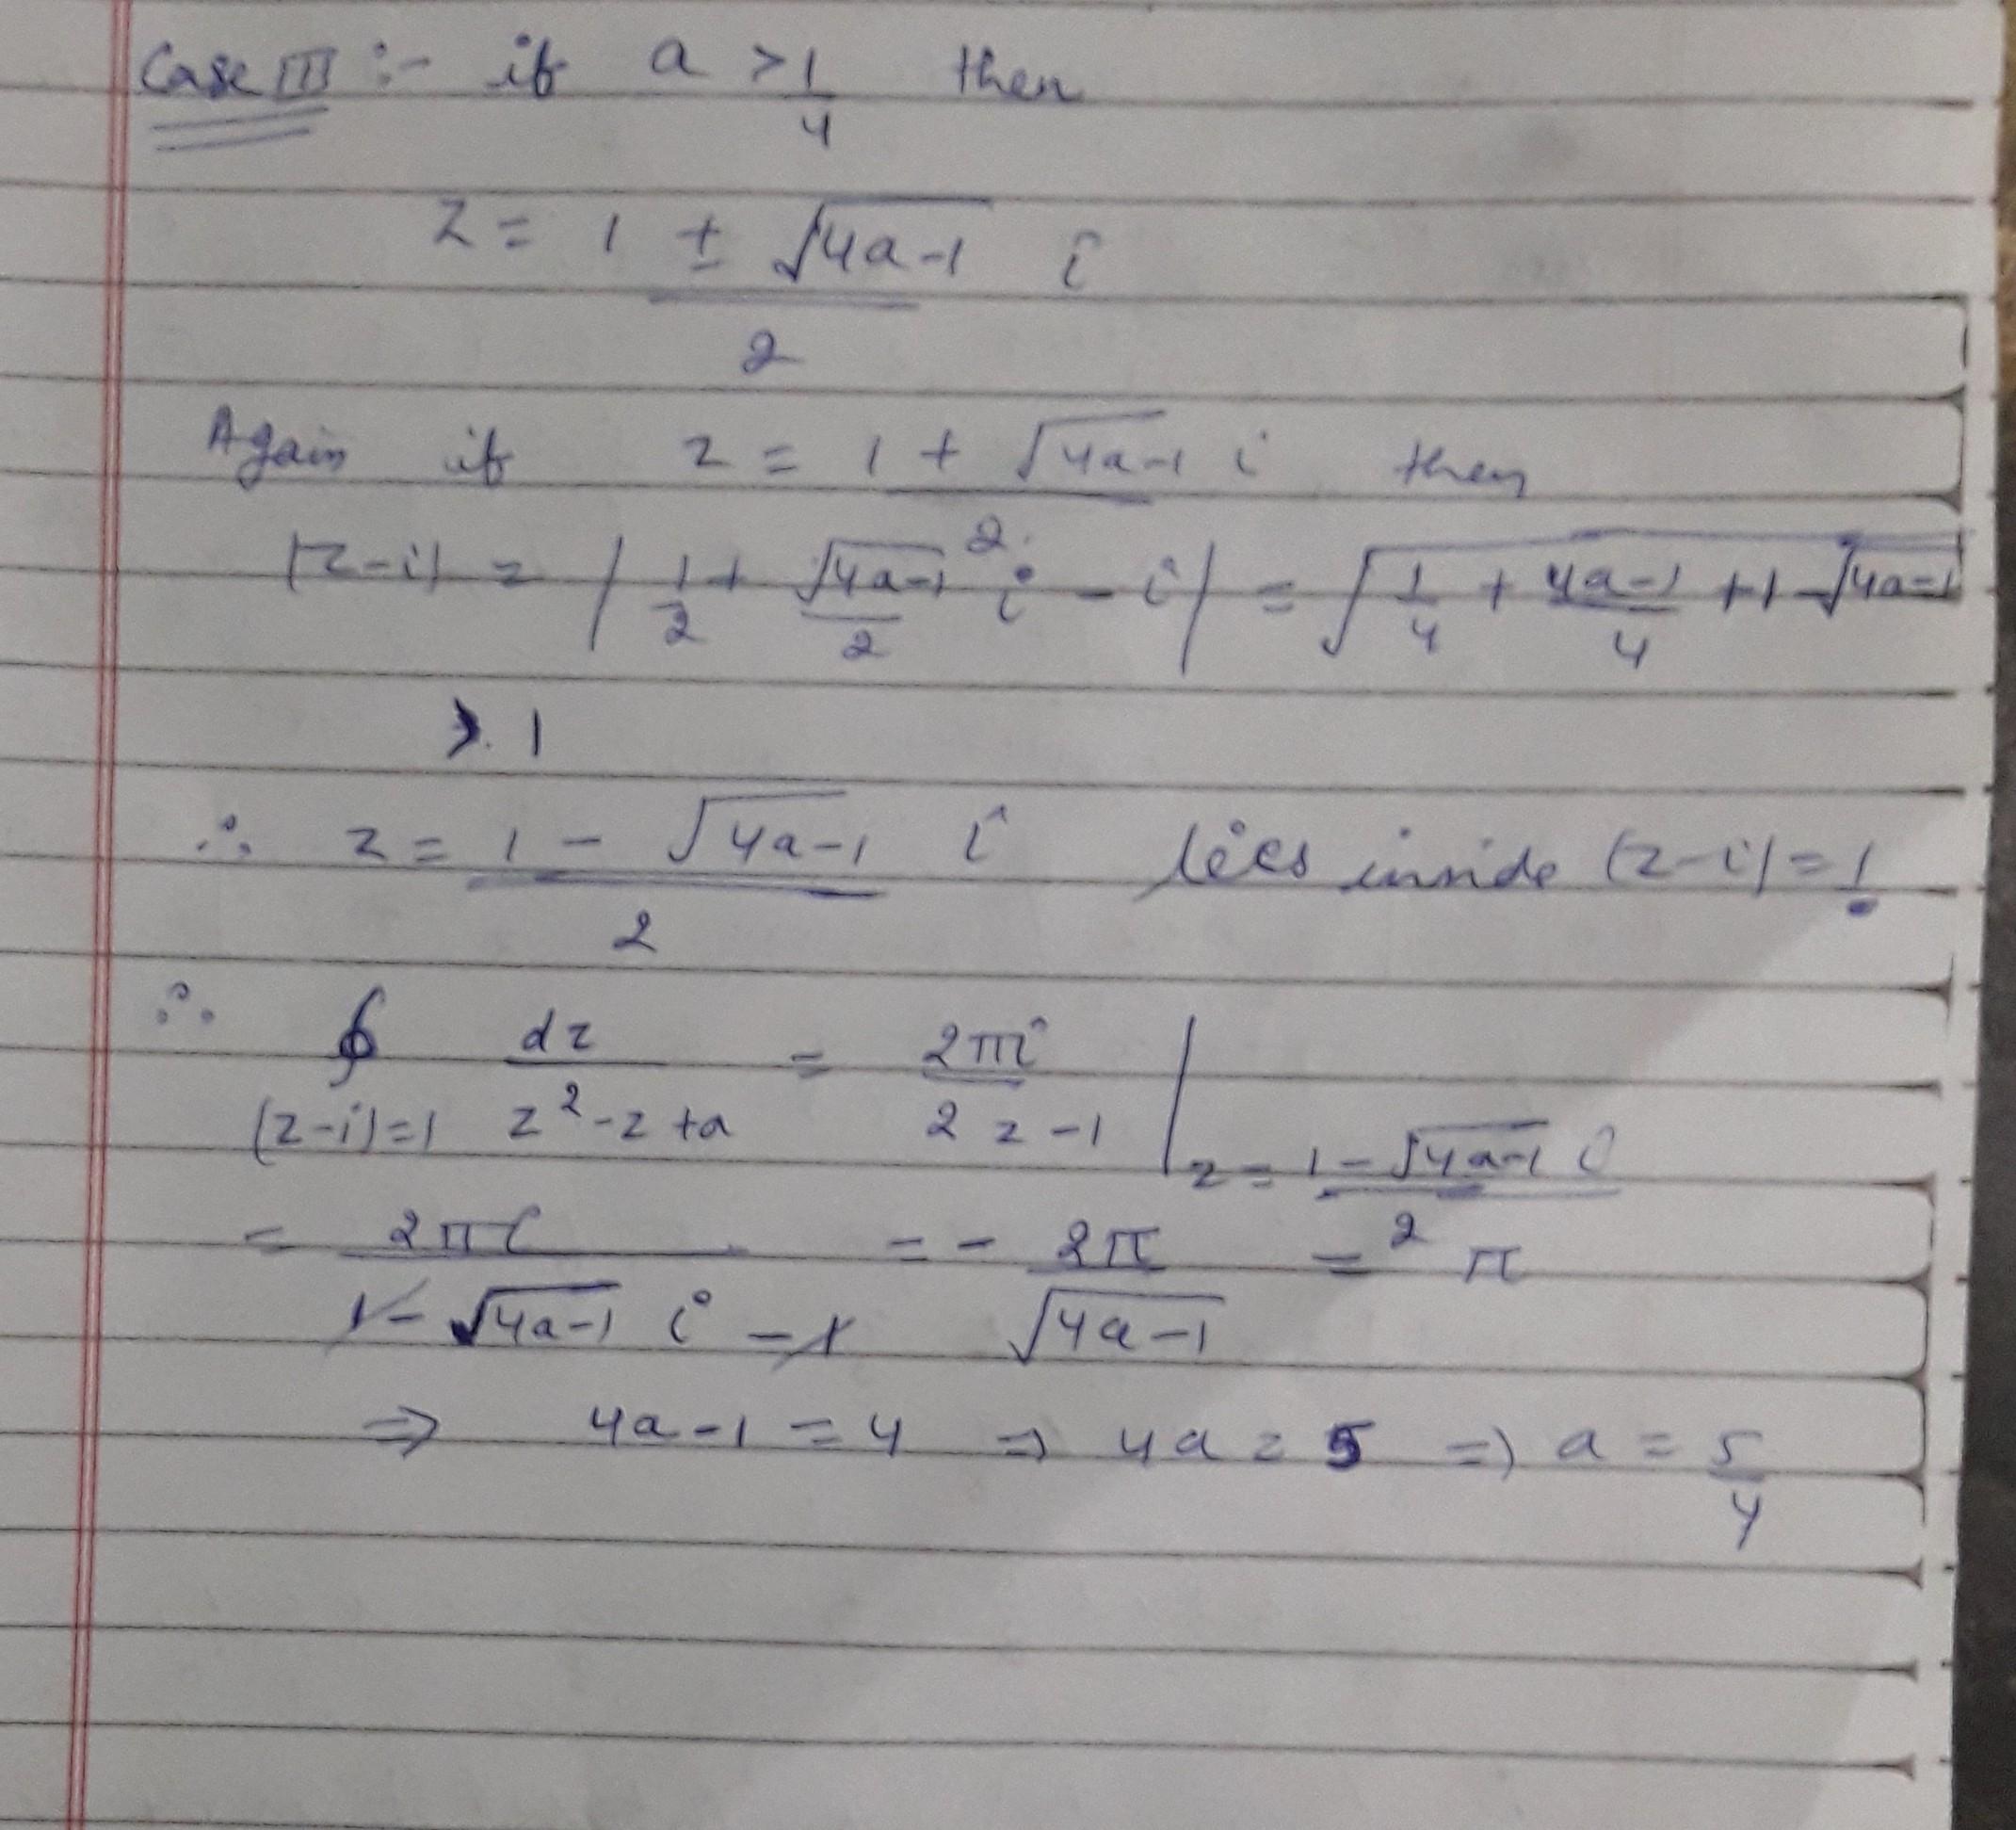 Case III :- if a > 1/4 then
z = 1 ± √4a-1 i / 2
Again if z = 1 + √4a-1 i / 2 then
|z-i| = | 1/2 + √4a-1/2 i - i | = √1/4 + 4a-1/4 + 1 - √4a-1
> 1
∴ z = 1 - √4a-1 i / 2 lies inside |z-i| = 1.
∴ ∮ |z-i|=1 dz / z²-z+a = 2πi / 2z-1 | z = 1-√4a-1 i / 2
= 2πi / 1-√4a-1 i -1 = - 2π / √4a-1 = π
⇒ 4a-1 = 4 ⇒ 4a = 5 ⇒ a = 5/4